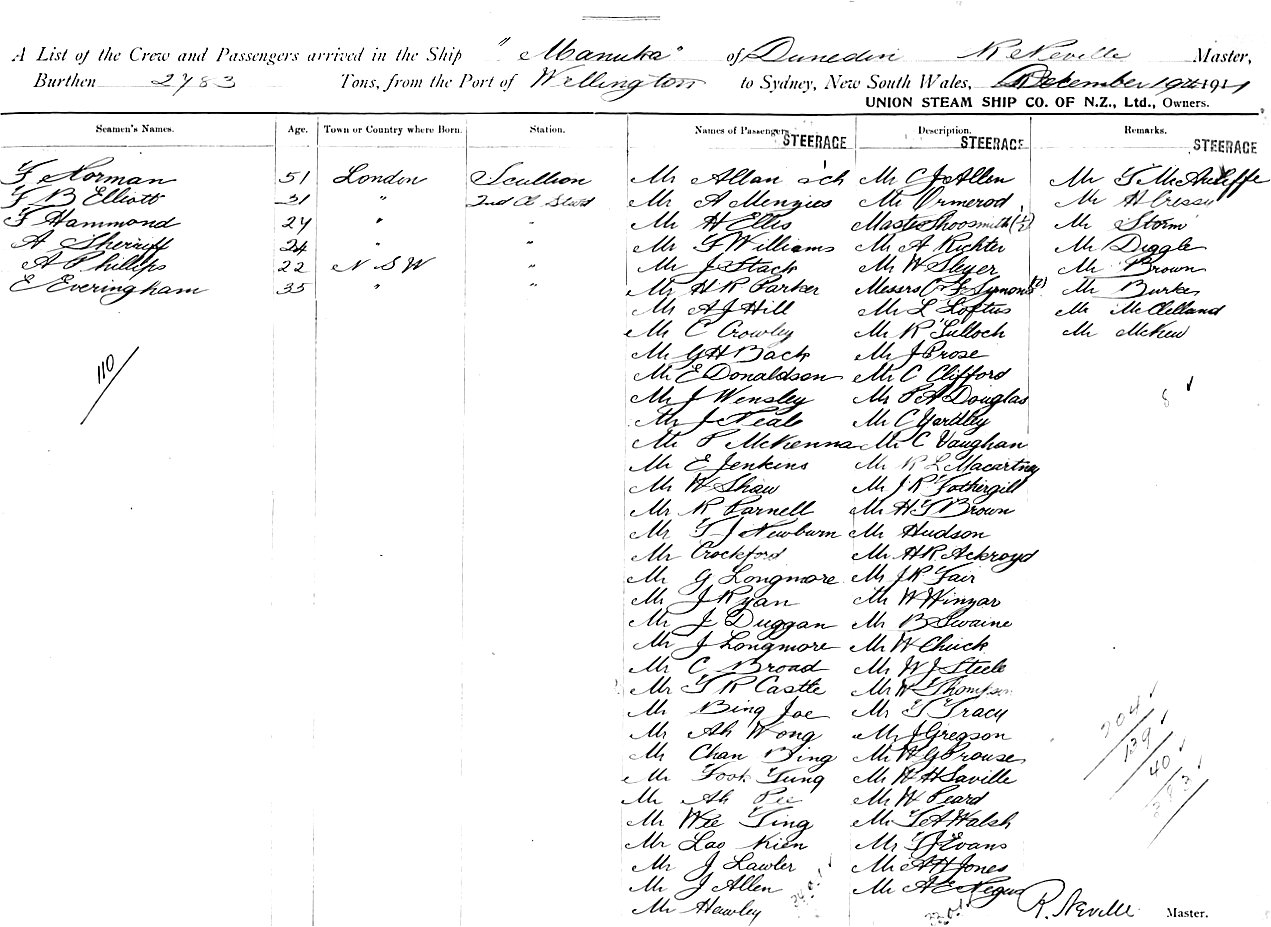 A List of the Crew and Passengers arrived in the Ship "Manuka" of Dunedin R Neville Master,
Burthen 2783 Tons, from the Port of Wellington to Sydney, New South Wales, December 19th 1911
UNION STEAM SHIP CO. OF N.Z., Ltd., Owners.
Seamen's Names. Age. Town or Country where Born. Station. Names of Passengers. Description. Remarks.
STEERAGE STEERAGE STEERAGE
F Norman 51 London Scullion Mr Allan Mr C J Allen Mr T McAuliffe
F B Elliott 31 " 2nd Cl Stwd Mr A Menzies Mr Ormerod Mr H Cressy
F Hammond 24 " " Mr H Ellis Master Shoosmith (½) Mr Storm
A Sherriff 24 " " Mr F Williams Mr A Richter Mr Diggle
A Phillips 22 N S W " Mr J Stack Mr W Sleyer Mr Brown
E Everingham 35 " " Mr H R Parker Messrs Symons (2) Mr Burke
Mr A J Hill Mr L Loftus Mr McClelland
Mr C Crowley Mr R Tulloch Mr McKew
110
Mr G H Back Mr J Prose
Mr E Donaldson Mr C Clifford
Mr J Wensley Mr P A Douglas 8
Mr J Neale Mr C Yardley
Mr P McKenna Mr C Vaughan
Mr E Jenkins Mr R L Macartney
Mr W Shaw Mr J R Fothergill
Mr R Parnell Mr H T Brown
Mr T J Newburn Mr Hudson
Mr Crockford Mr H R Ackroyd
Mr G Longmore Mr J R Fair
Mr J Ryan Mr W Winzar
Mr J Duggan Mr B Swaine
Mr J Longmore Mr W Chuck
Mr C Broad Mr W J Steele
Mr T R Castle Mr W Thompson
Mr Bing Joe Mr T Tracy 204
Mr Ah Wong Mr J Gregson 139
Mr Chan Bing Mr W G Prouse 40
Mr Fook Tung Mr W H Saville 383
Mr Ah Pee Mr W Peard
Mr Wee Ting Mr T A Walsh
Mr Lao Kien Mr Evans
Mr J Lawler Mr A H Jones
Mr J Allen Mr A E Negus
Mr Hawley R. Neville Master.